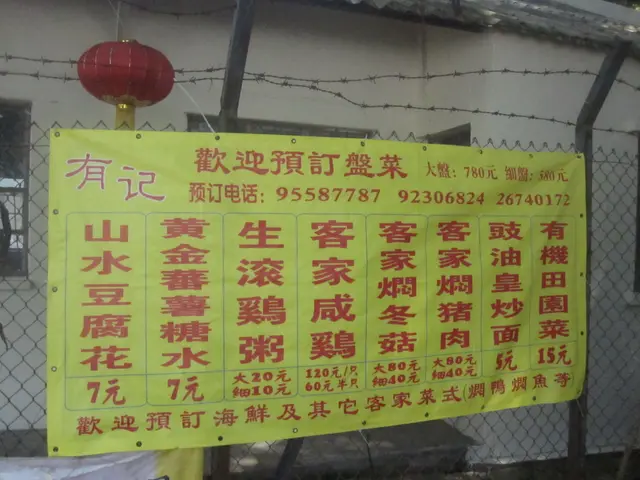 有记
歡迎預訂盤菜
大盤：780元 細盤：580元
预订电话：95587787 92306824 26740172
山水豆腐花
7元
黃金蕃薯糖水
7元
生滚鷄粥
大20元
細10元
客家咸鷄
120元/只
60元半只
客家燜冬菇
大80元
細40元
客家燜猪肉
大80元
細40元
豉油皇炒面
5元
有機田園菜
15元
歡迎預訂海鮮及其它客家菜式(燜鴨燜魚等